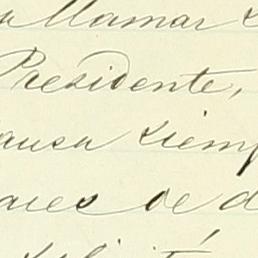 llamar
Presidente,
ausa siemp
ares de d